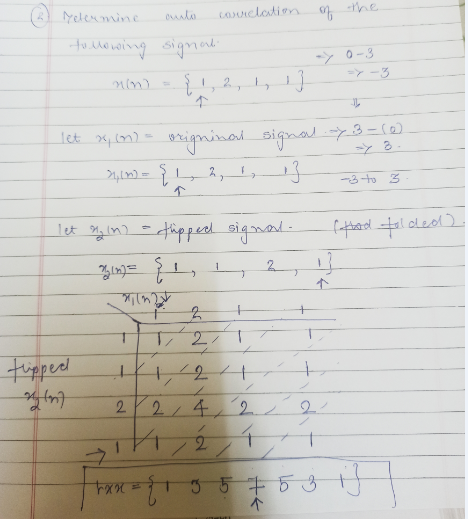 ② Determine auto correlation of the
following signal.
⇒ 0-3
x(n) = { 1, 2, 1, 1 } ⇒ -3
↑ ⇓
let x₁(n) = origninal signal ⇒ 3-(0)
⇒ 3.
x₁(n) = { 1, 2, 1, 1 } -3 to 3.
↑
let x₂(n) = flipped signal. folded)
x₂(n) = { 1, 1, 2, 1 }
↑
x₁(n) ↓
1 2 1 1
1 1 2 1 1
flipped 1 1 2 1 1
x₂(n)
2 2 4 2 2
→ 1 1 2 1 1
rxx = { 1 3 5 7 5 3 1 }
↑